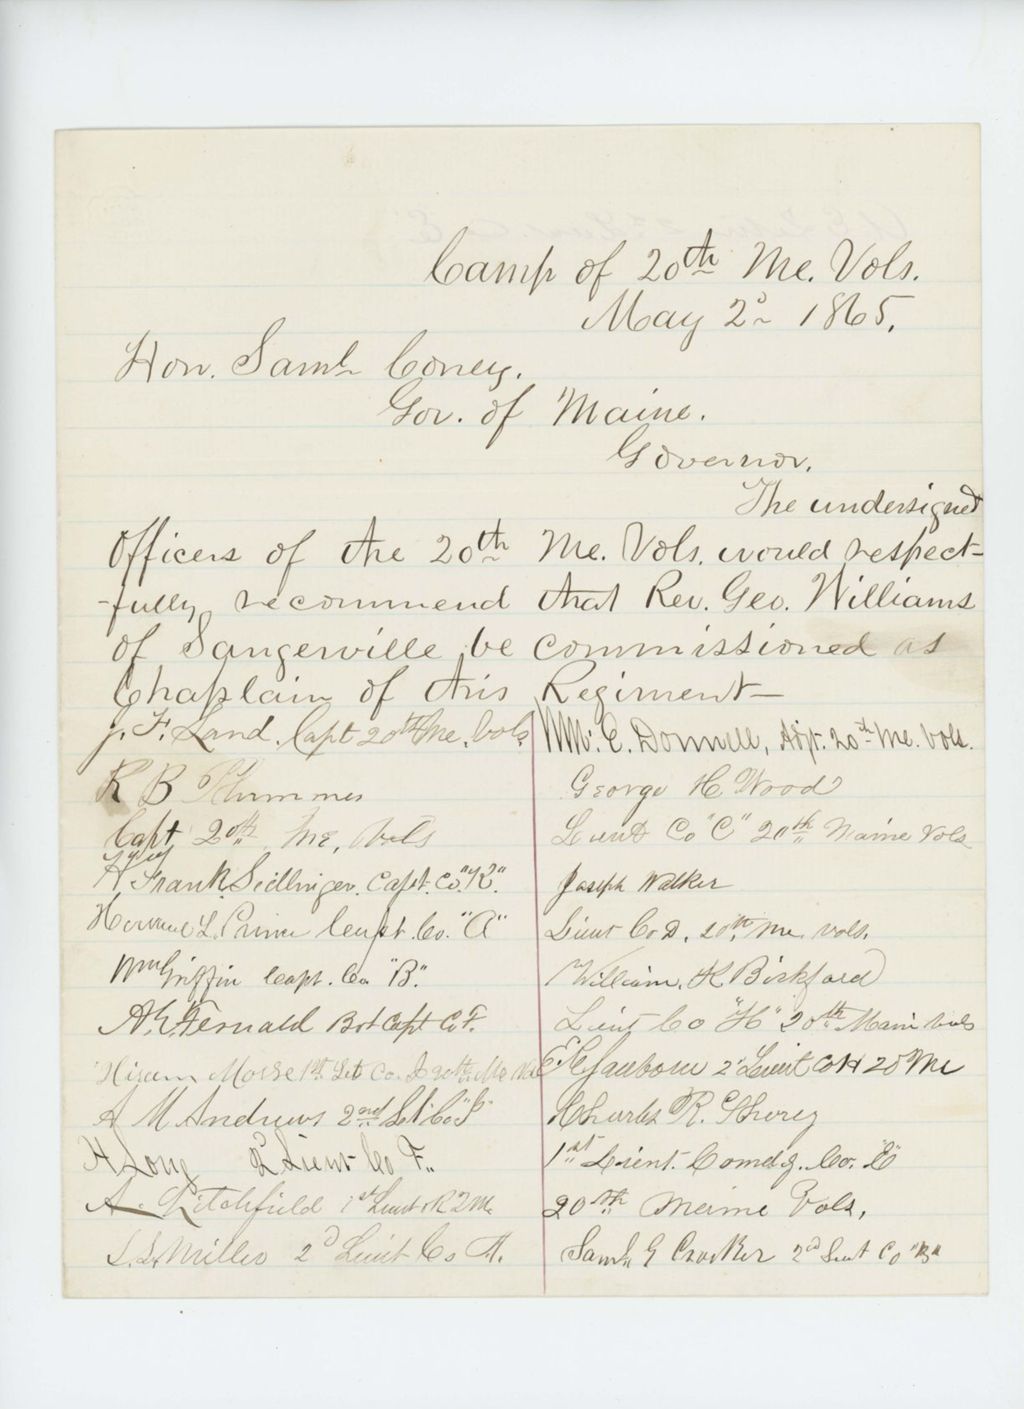 Camp of 20th Me. Vols.
May 2d 1865.
Hon. Saml. Coney.
Gov. of Maine.
Governor.
The undersigned
Officers of the 20th Me. Vols. would respect-
-fully recommend that Rev. Geo. Williams
of Sangerville be commissioned as
Chaplain of this Regiment—
J. F. Land. Capt 20th Me. Vols
R B Plummer
Capt 20th Me, Vols
Frank Sidlinger. Capt. Co. "K".
L. Prince Capt. Co. "A"
Wm Griffin Capt. Co "B".
A. E. Fernald Bvt Capt Co F.
Hiram Morse 1st Lt Co. 20th Me Vols
A M Andrews 2nd Lt Co
H Long 2d Lieut Co F.
A. Litchfield 1st Lieut
S. L. Miller 2d Lieut Co A.
Wm. E. Donnell, Adjt. 20th Me. Vols.
George H Wood
Lieut Co "C" 20th Maine Vols
Joseph Walker
Lieut Co D. 20th Me. Vols.
William K Bickford
Lieut Co "H" 20th Maine Vols
Sanborn 2d Lieut Co H 20 Me
Charles R. Shorey
1st Lieut. Comdg. Co. "E"
20th Maine Vols,
Saml G Crocker 2d Lieut Co "B"